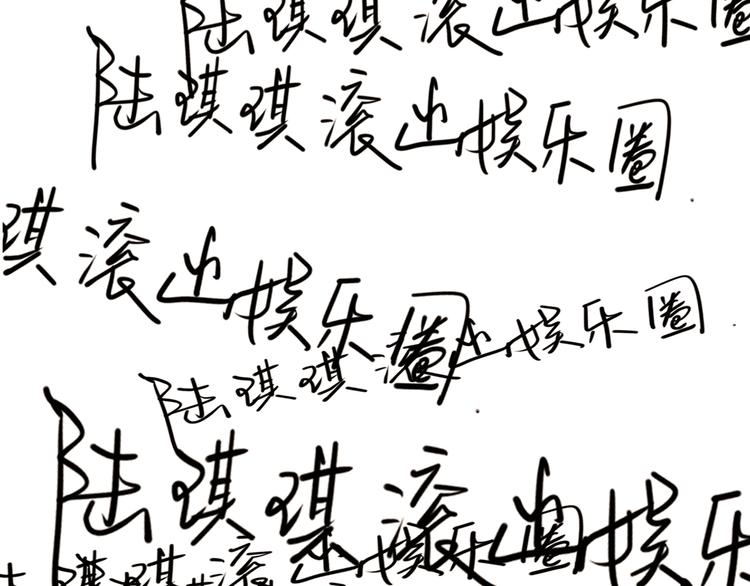 陆琪琪滚出娱乐圈
陆琪琪滚出娱乐圈
琪滚出娱乐圈
陆琪琪滚出娱乐圈
陆琪琪滚出娱乐
琪琪滚出娱乐圈